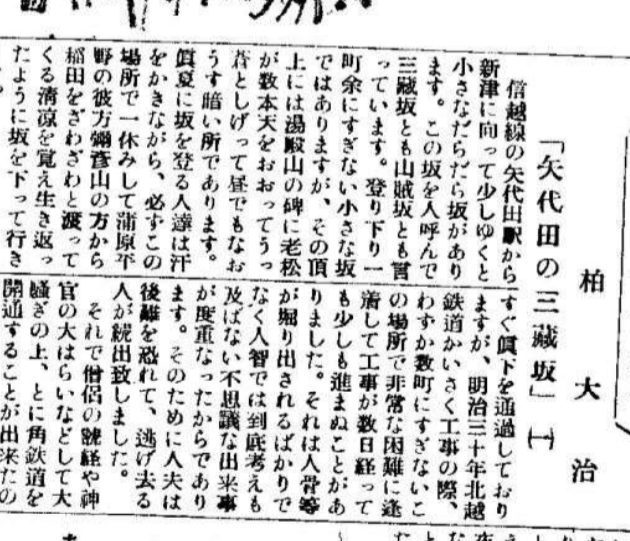 「矢代田の三藏坂」 ㈠
柏大治
信越線の矢代田駅から
新津に向って少しゆくと
小さなだらだら坂があり
ます。この坂を人呼んで
三藏坂とも山賊坂とも言
っています。登り下り一
町余にすぎない小さな坂
ではありますが、その頂
上には湯殿山の碑に老松
が数本天をおおってうっ
蒼としげって昼でもなお
うす暗い所であります。
眞夏に坂を登る人達は汗
をかきながら、必ずこの
場所で一休みして蒲原平
野の彼方彌彦山の方から
稲田をざわざわと渡って
くる清涼を覚え生き返っ
たように坂を下って行き
すぐ眞下を通過しており
ますが、明治三十年北越
鉄道かいさく工事の際、
わずか数町にすぎないこ
の場所で非常な困難に逢
着して工事が数日経って
も少しも進まぬことがあ
りました。それは人骨等
が掘り出されるばかりで
なく人智では到底考えも
及ばない不思議な出来事
が度重なったからであり
ます。そのために人夫は
後難を恐れて、逃げ去る
人が続出致しました。
それで僧侶の読経や神
官の大はらいなどして大
騒ぎの上、とに角鉄道を
開通することが出来たの